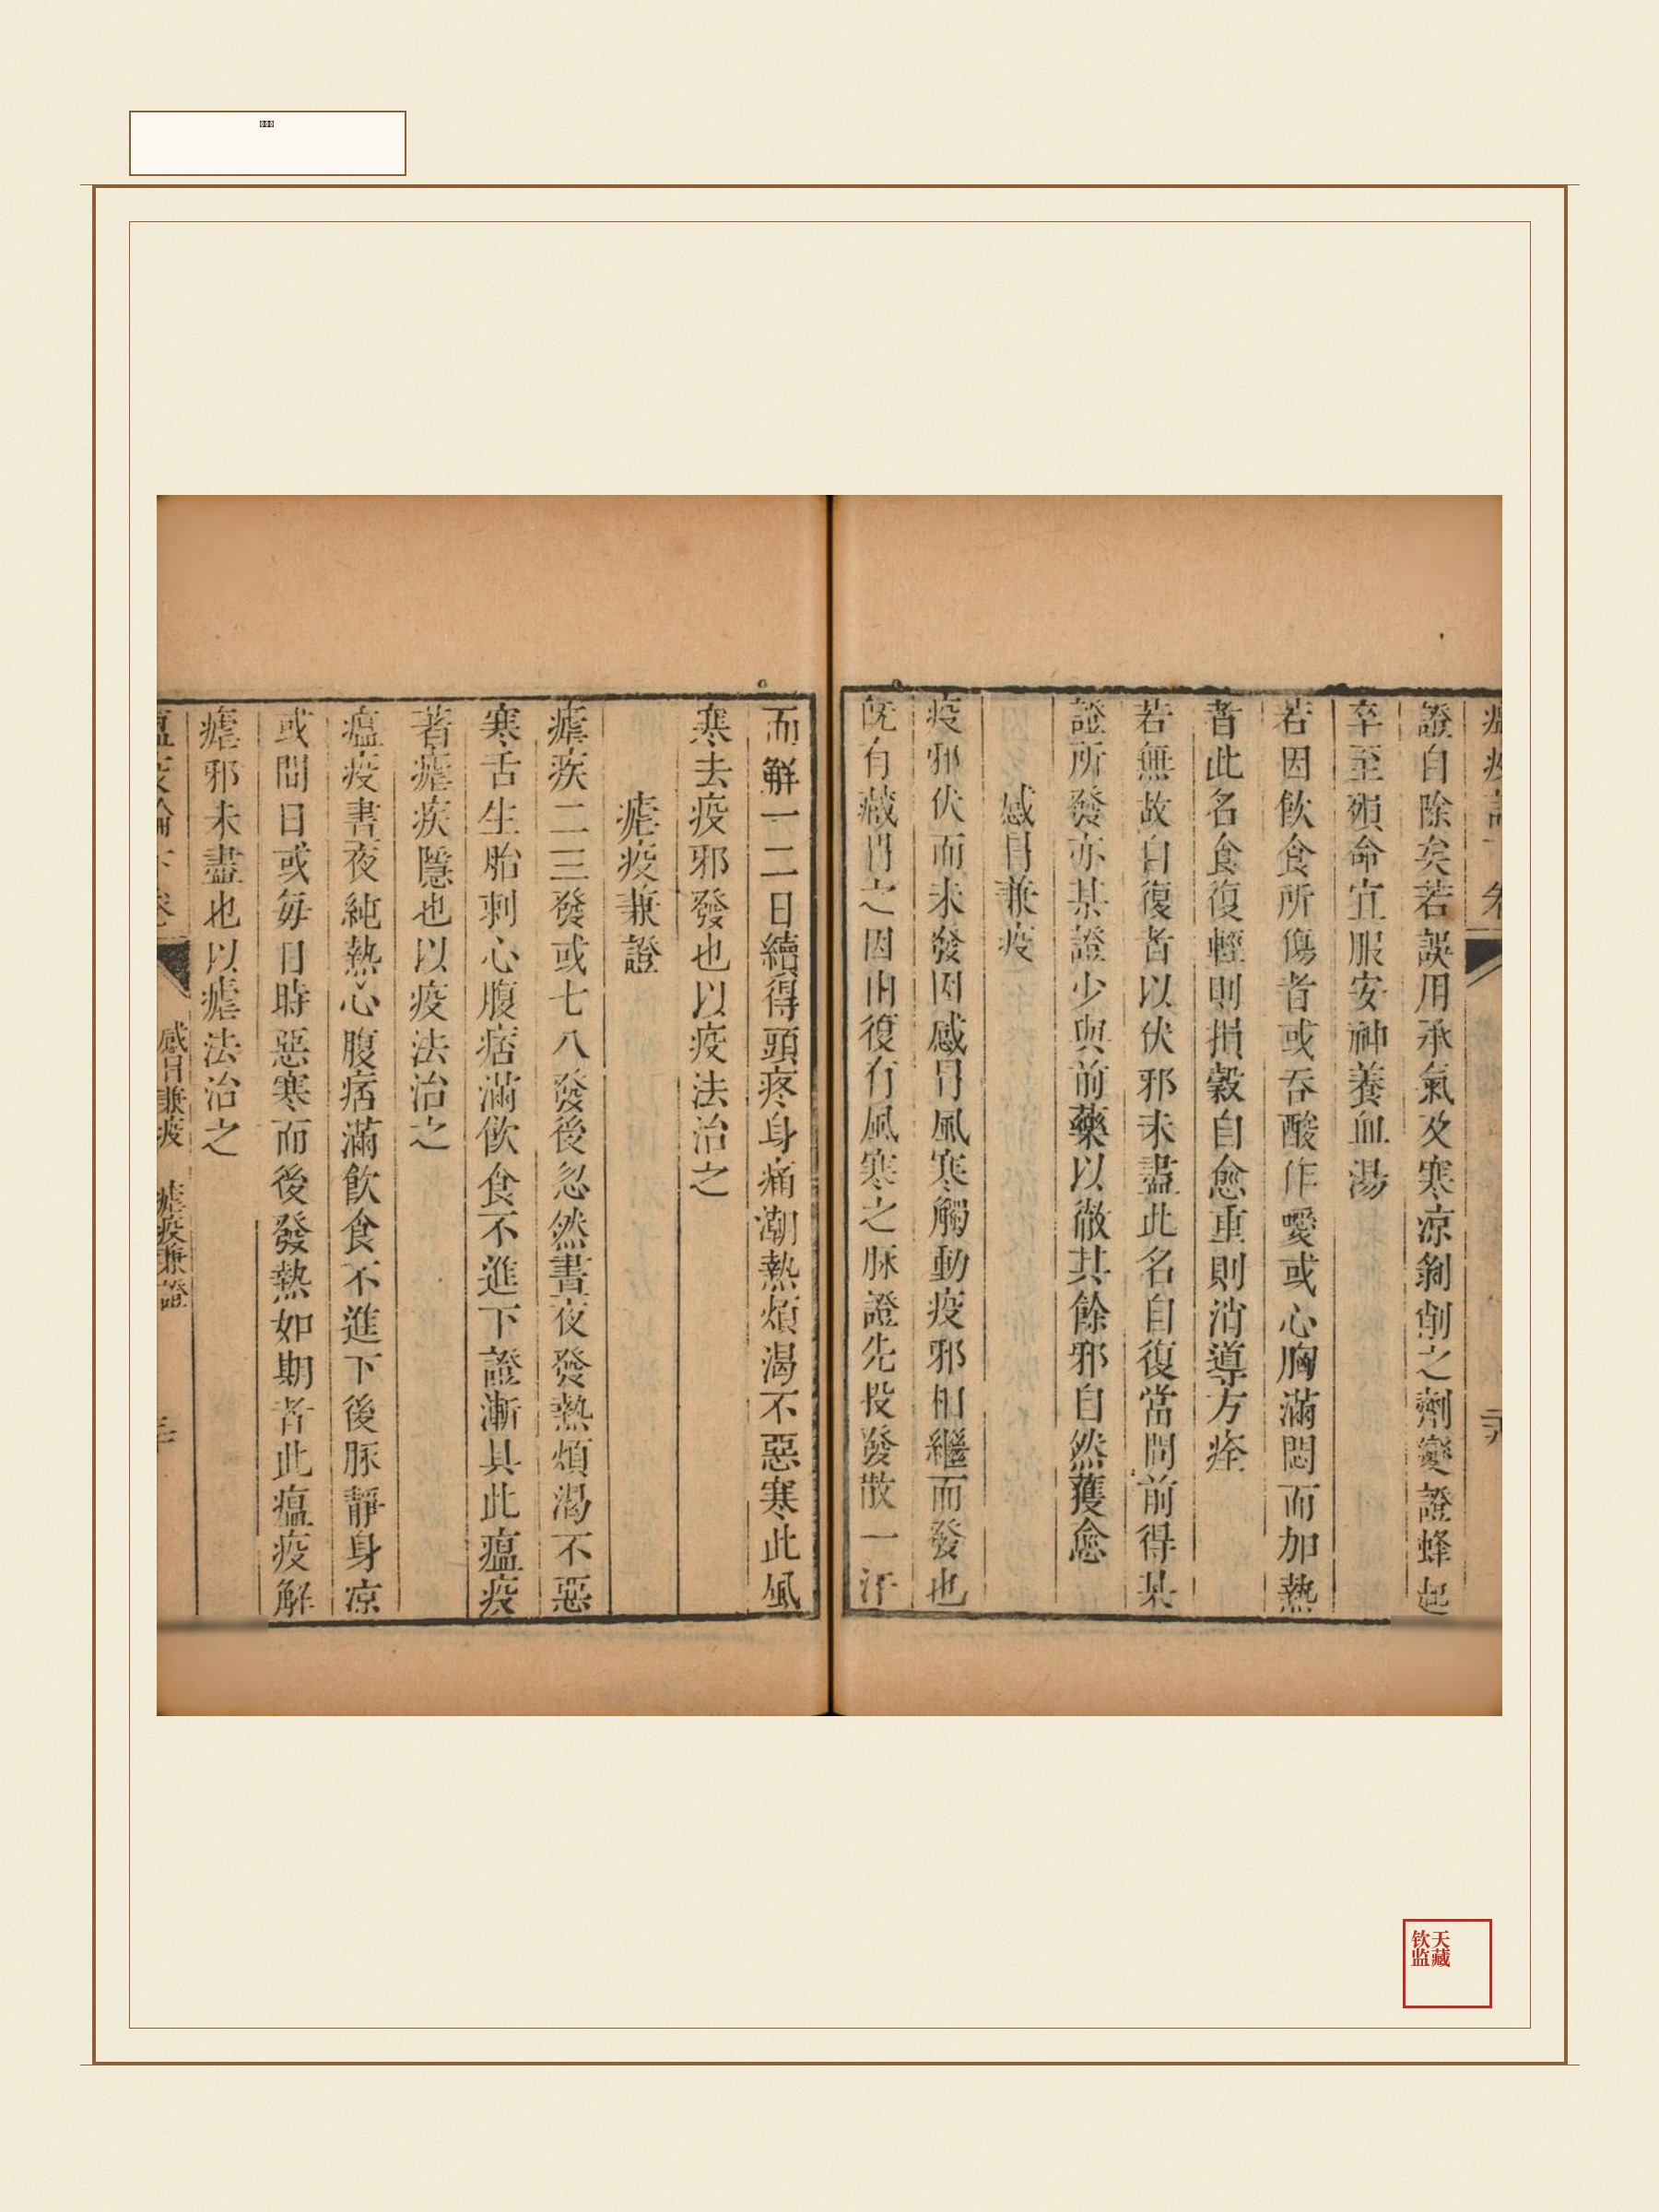 證自除矣若誤用承氣及寒凉剝削之劑變證蜂起
卒至殞命宜服安神養血湯
若因飲食所傷者或吞酸作噯或心胸滿悶而加熱
者此名食復輕則損穀自愈重則消導方痊
若無故自復者以伏邪未盡此名自復當問前得某
證所發亦某證少與前藥以徹其餘邪自然獲愈
感冒兼疫
疫邪伏而未發因感冒風寒觸動疫邪相繼而發也
既有感冒之因由復有風寒之脉證先投發散一汗
而解一二日續得頭疼身痛潮熱煩渴不惡寒此風
寒去疫邪發也以疫法治之
瘧疫兼證
瘧疾二三發或七八發後忽然晝夜發熱煩渴不惡
寒舌生胎刺心腹痞滿飲食不進下證漸具此瘟疫
著瘧疾隱也以疫法治之
瘟疫晝夜純熱心腹痞滿飲食不進下後脉靜身凉
或間日或每日時惡寒而後發熱如期者此瘟疫解
瘧邪未盡也以瘧法治之
感冒兼疫 瘧疫兼證
天藏
钦监